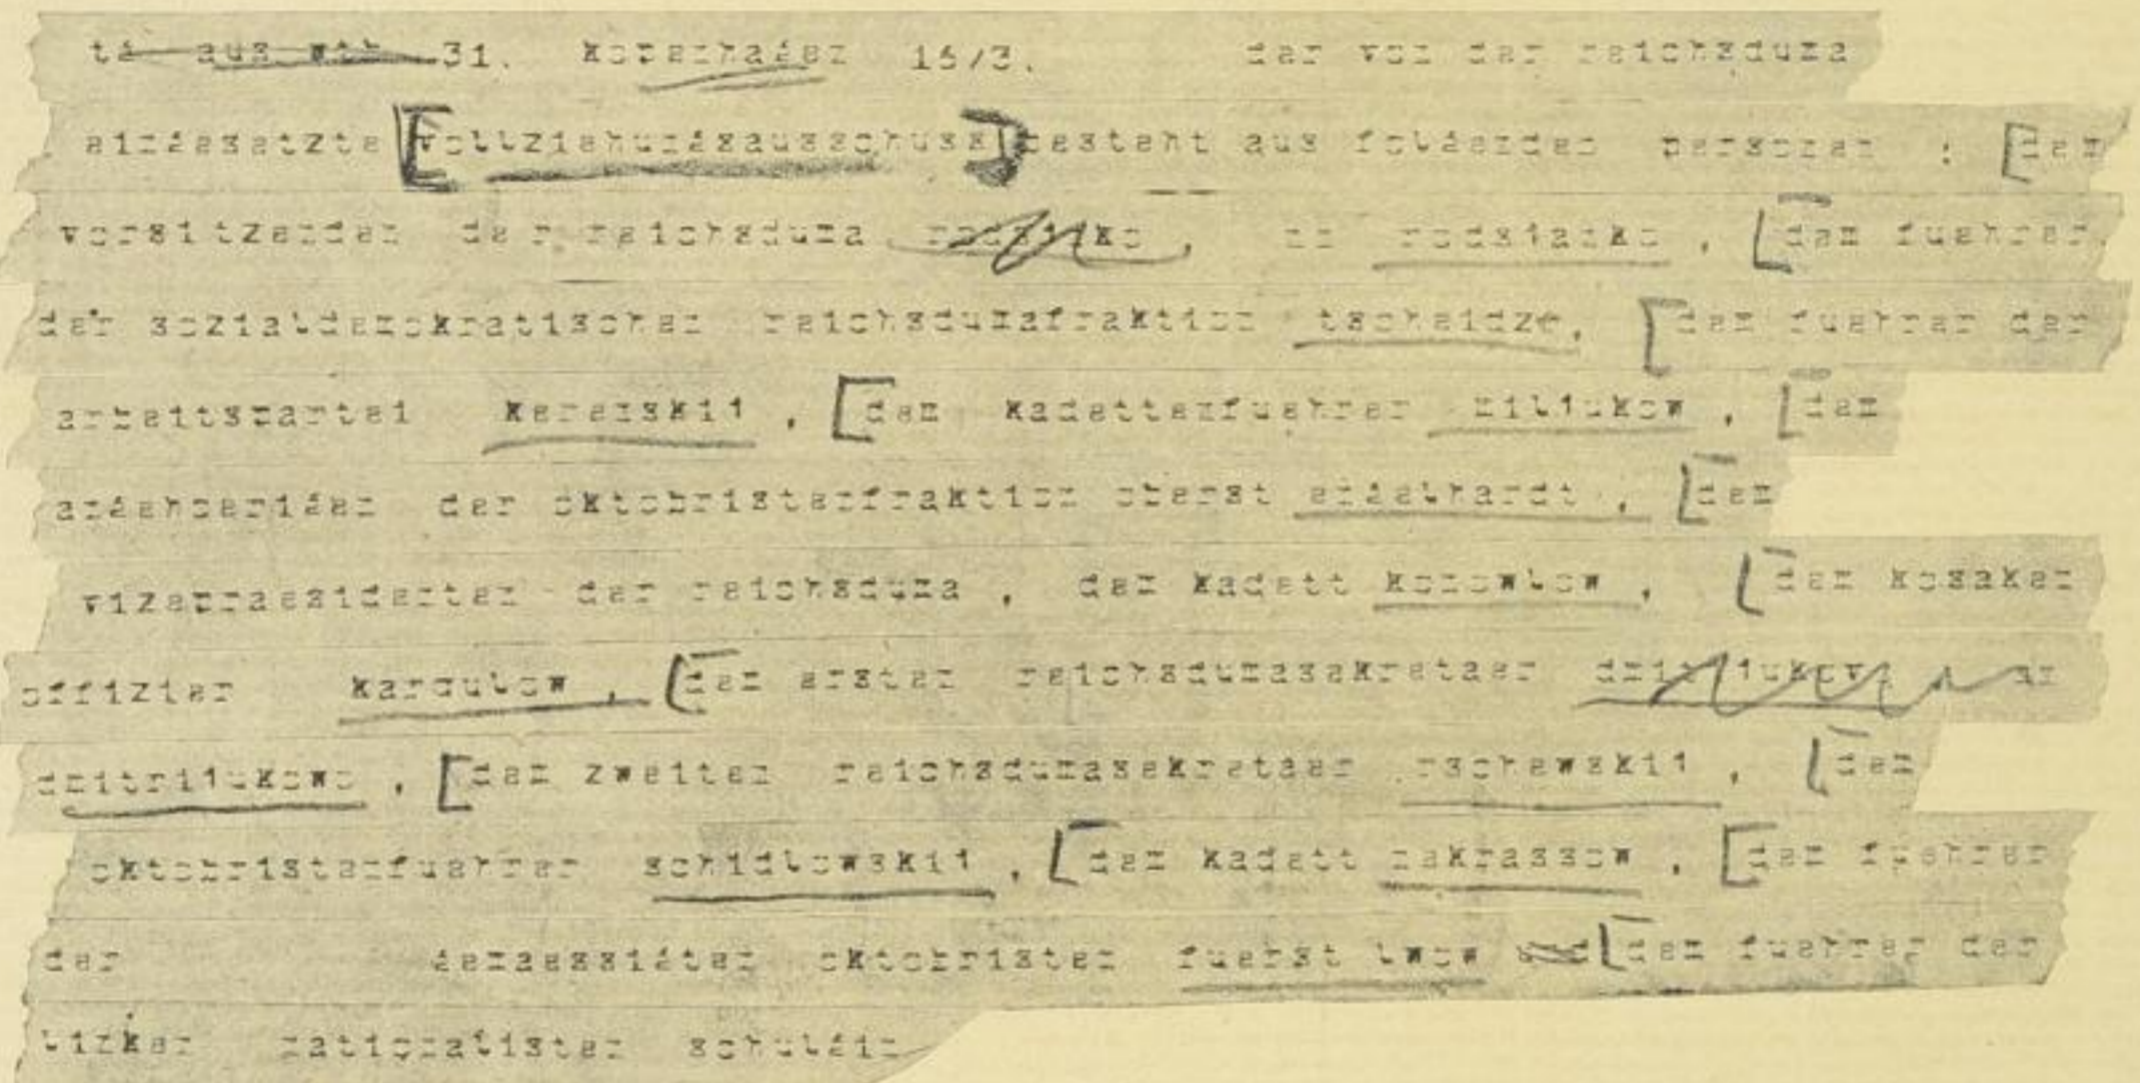 tg aus wtb 31. kopenhagen 16/3. der von der reichsduma
eingesetzte [vollziehungsausschuss] besteht aus folgenden personen : [dem
vorsitzenden der reichsduma , rr rodsianko , [dem fuehrer
der sozialdemokratischen reichsdumafraktion tscheidze, [dem fuehrer der
arbeitspartei kerenskii , [dem kadettenfuehrer miliukow , [dem
angehoerigen der oktobristenfraktion oberst engelhardt , [dem
vizepraesidenten der reichsduma , dem kadett konowlow , [dem kosaken
offizier karoulow , [dem ersten reichsdumasekretaer
dmitriiukowo , [dem zweiten reichsdumasekretaer rschewskii , [dem
oktobristenfuehrer schidlowskii , [dem kadett nekrassow , [dem fuehrer
der gemaessigten oktobristen fuerst lwow [dem fuehrer der
linken nationalisten schulgin